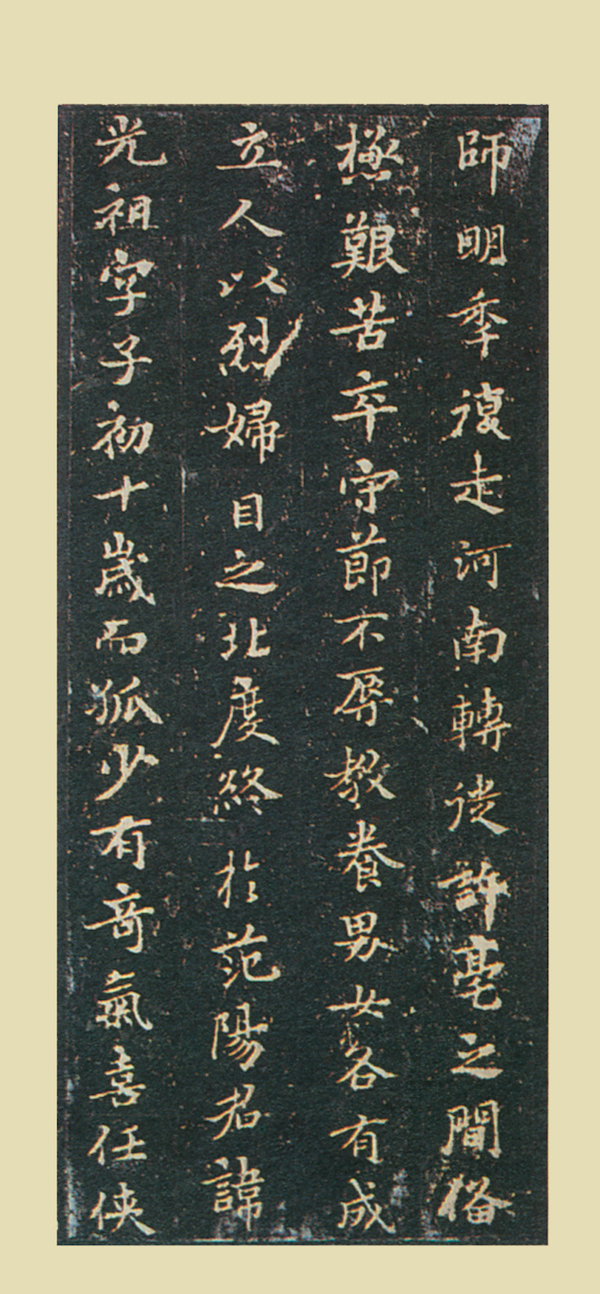 師明季復走河南轉徙許亳之間俻
極艱苦卒守節不辱教養男女各有成
立人以烈婦目之北度終於范陽君諱
光祖字子初十歲而孤少有奇氣喜任俠